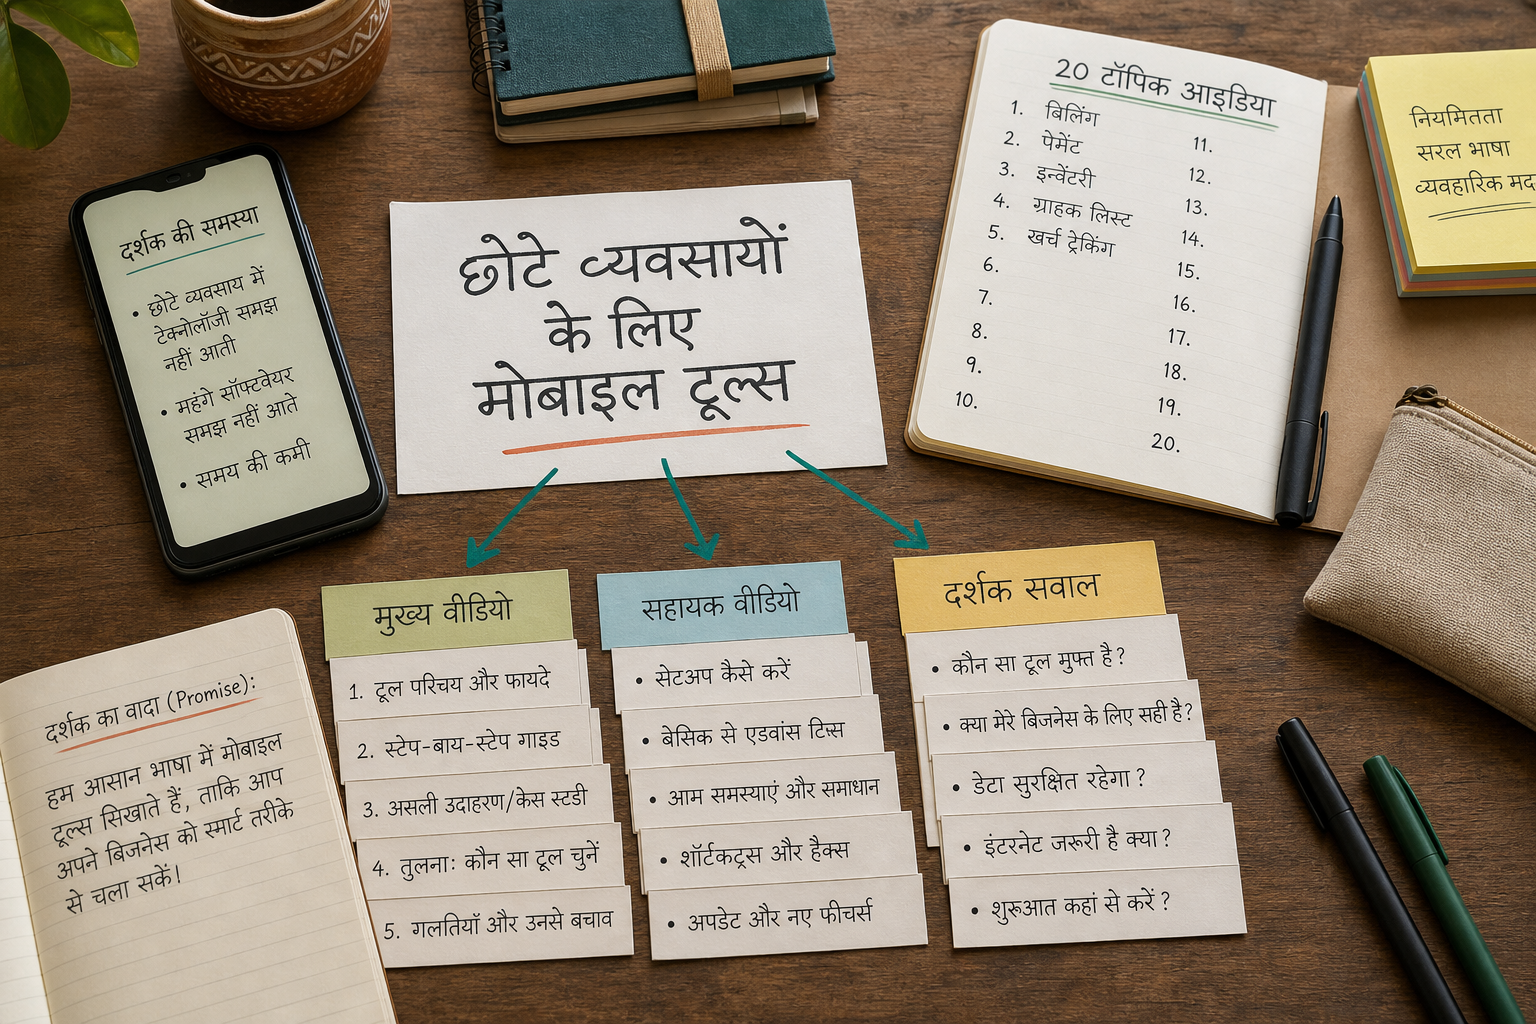 दर्शक की समस्या
• छोटे व्यवसाय में
टेक्नोलॉजी समझ
नहीं आती
• महंगे सॉफ्टवेयर
समझ नहीं आते
• समय की कमी
छोटे व्यवसायों
के लिए
मोबाइल टूल्स
20 टॉपिक आइडिया
1. बिलिंग
2. पेमेंट
3. इन्वेंटरी
4. ग्राहक लिस्ट
5. खर्च ट्रेकिंग
6.
7.
8.
9.
10.
11.
12.
13.
14.
15.
16.
17.
18.
19.
20.
नियमितता
सरल भाषा
व्यवहारिक मद
मुख्य वीडियो
1. टूल परिचय और फायदे
2. स्टेप-बाय-स्टेप गाइड
3. असली उदाहरण/केस स्टडी
4. तुलना: कौन सा टूल चुनें
5. गलतियाँ और उनसे बचाव
सहायक वीडियो
• सेटअप कैसे करें
• बेसिक से एडवांस टिप्स
• आम समस्याएं और समाधान
• शॉर्टकट्स और हैक्स
• अपडेट और नए फीचर्स
दर्शक सवाल
• कौन सा टूल मुफ्त है?
• क्या मेरे बिजनेस के लिए सही है?
• डेटा सुरक्षित रहेगा?
• इंटरनेट जरूरी है क्या?
• शुरूआत कहां से करें?
दर्शक का वादा (Promise):
हम आसान भाषा में मोबाइल
टूल्स सिखाते हैं, ताकि आप
अपने बिजनेस को स्मार्ट तरीके
से चला सकें।